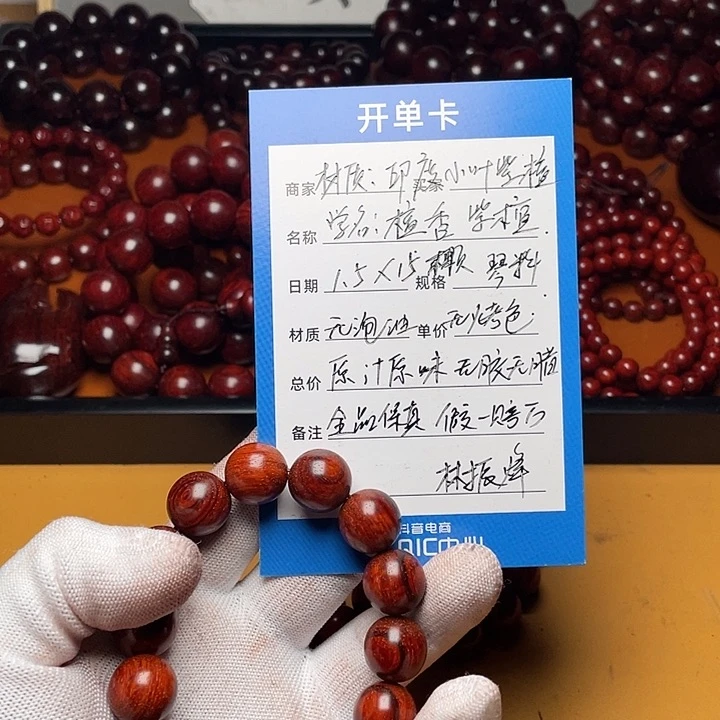 开单卡
商家 材质：印度小叶紫檀
名称 学名：檀香紫檀
日期 1.5×15颗 规格 琴料
材质 无泡油 单价 无烤色
总价 原汁原味 无胶无腊
备注 全品保真 假一赔百
林振峰
抖音电商
QIC中心